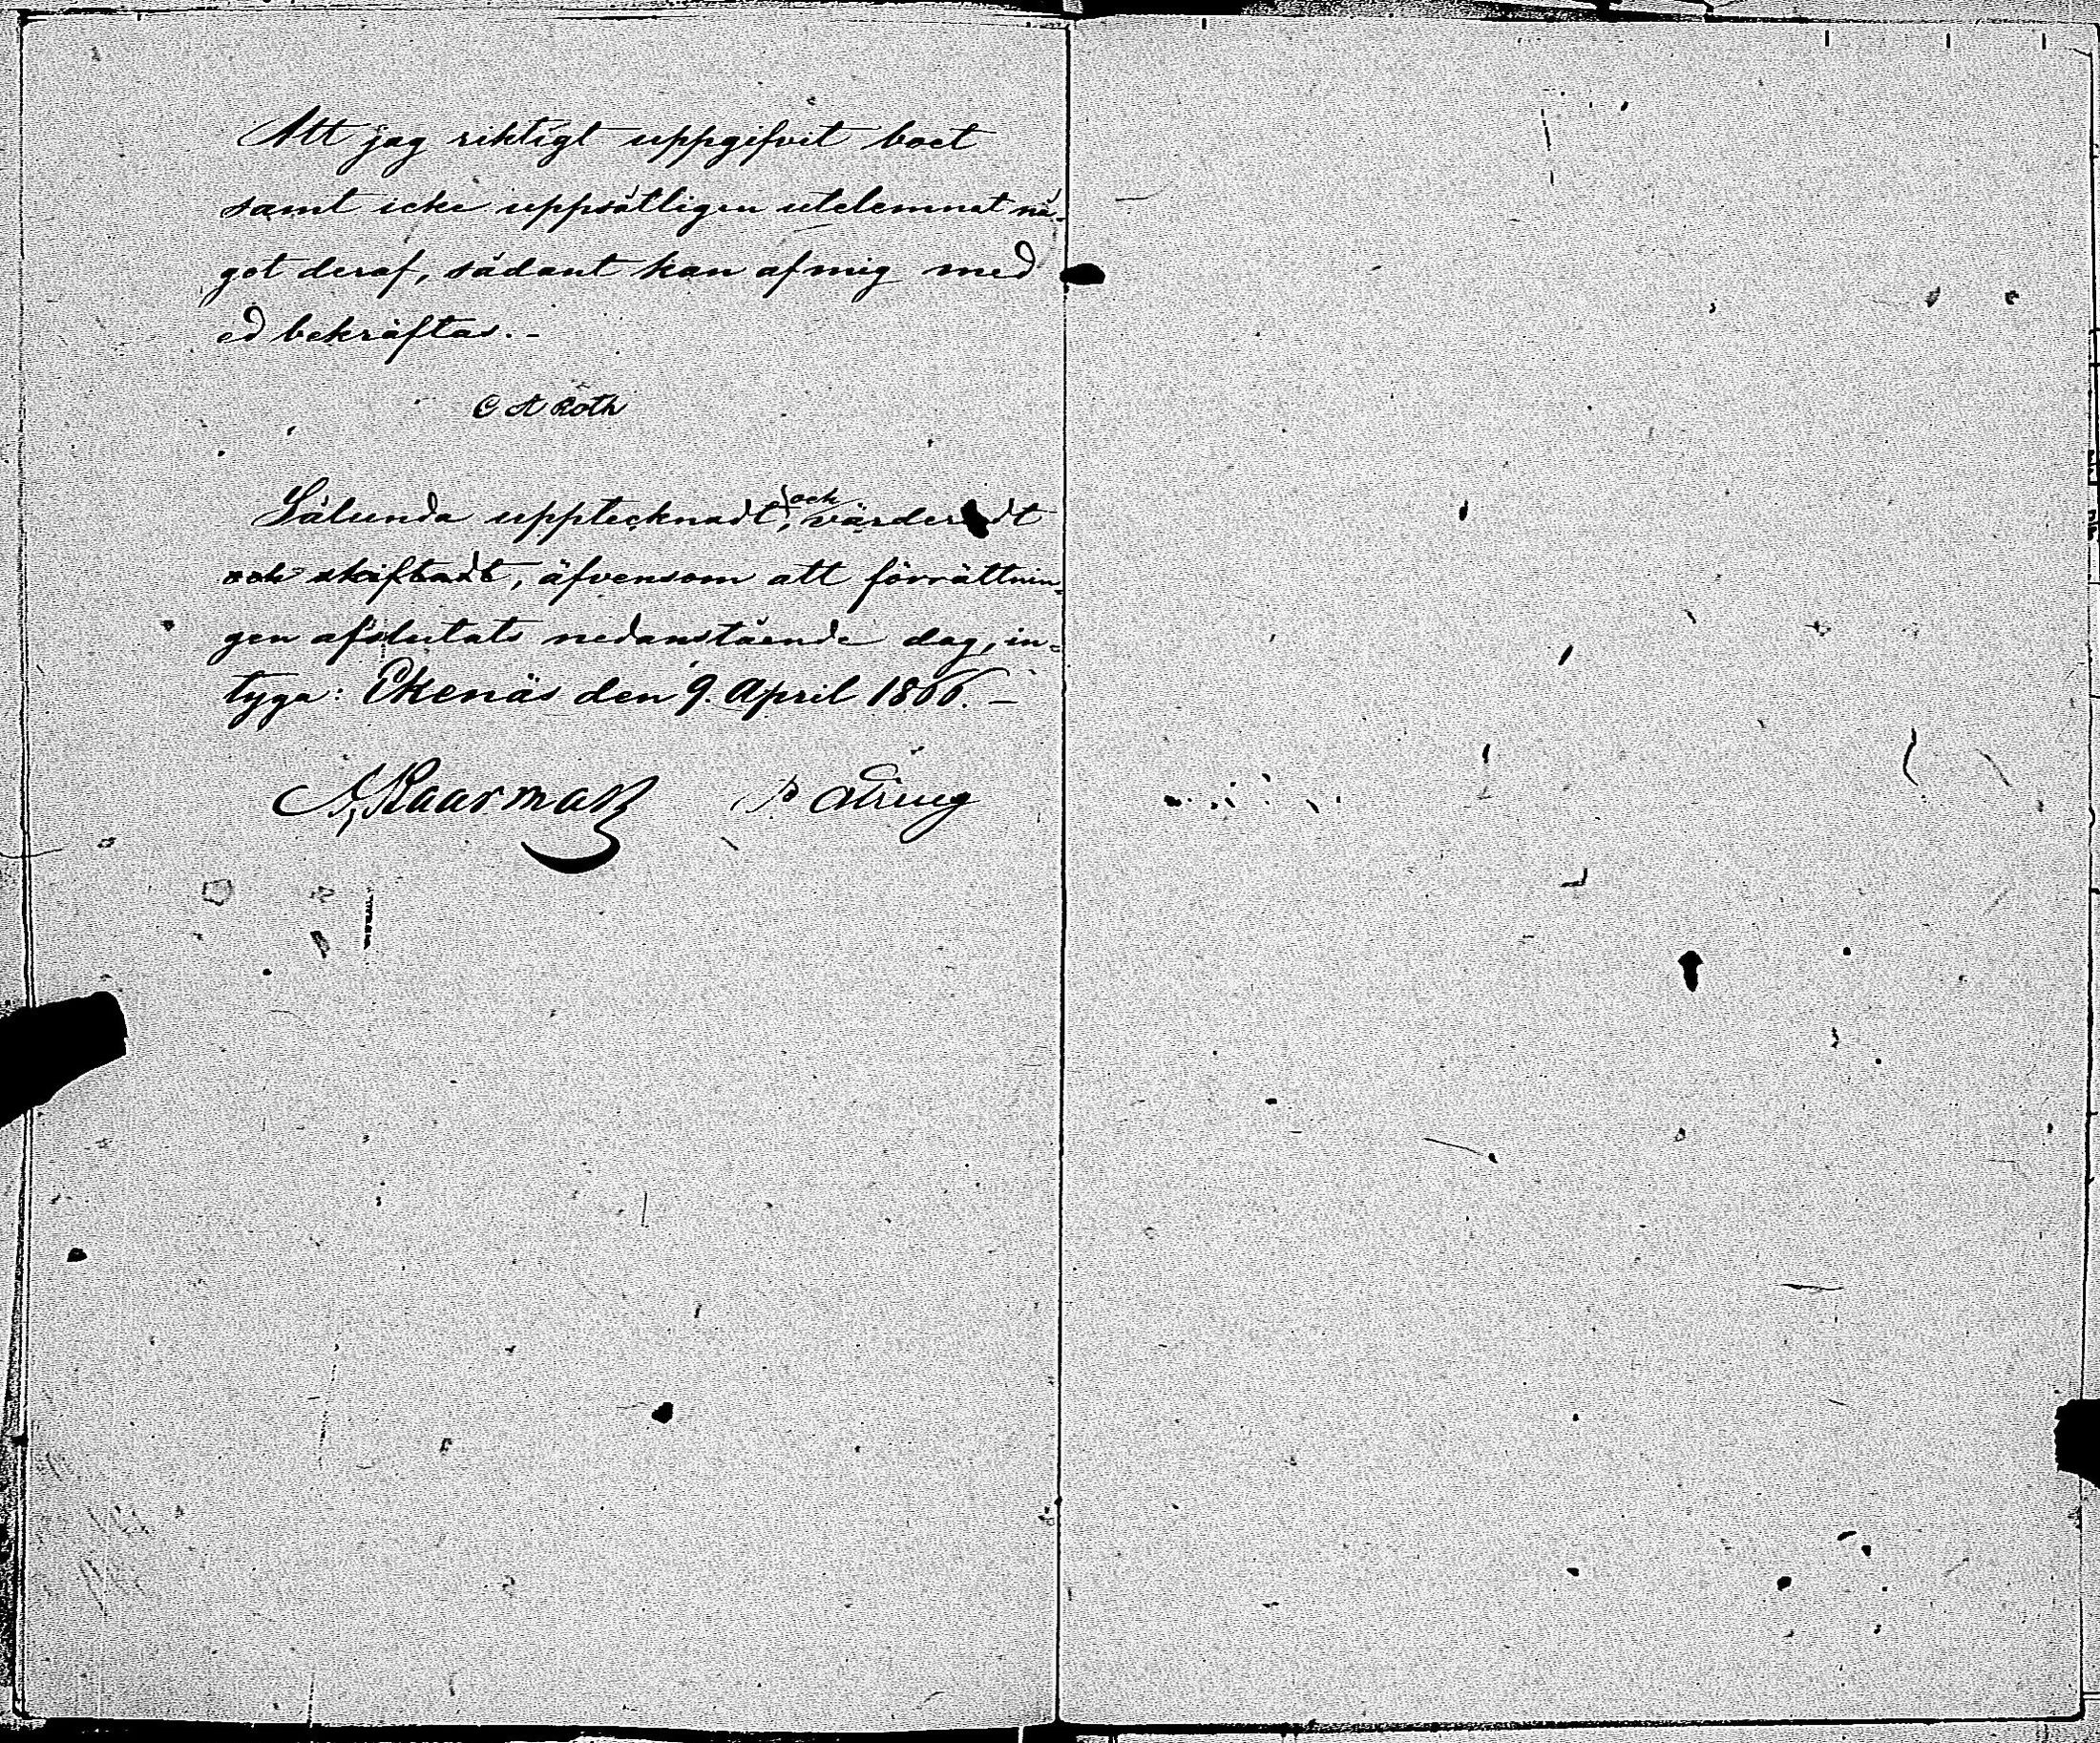 Att jag riktigt uppgifvit boet
samt icke uppsåtligen utelemnat nå-
got deraf, sådant kan af mig med
ed bekräftas.-
C A Roth
Sålunda upptecknadt, och värderadt
och skiftadt, äfvensom att förrättnin-
gen afslutats nedanstående dag, in-
tyga: Ekenäs den 9. April 1866.-